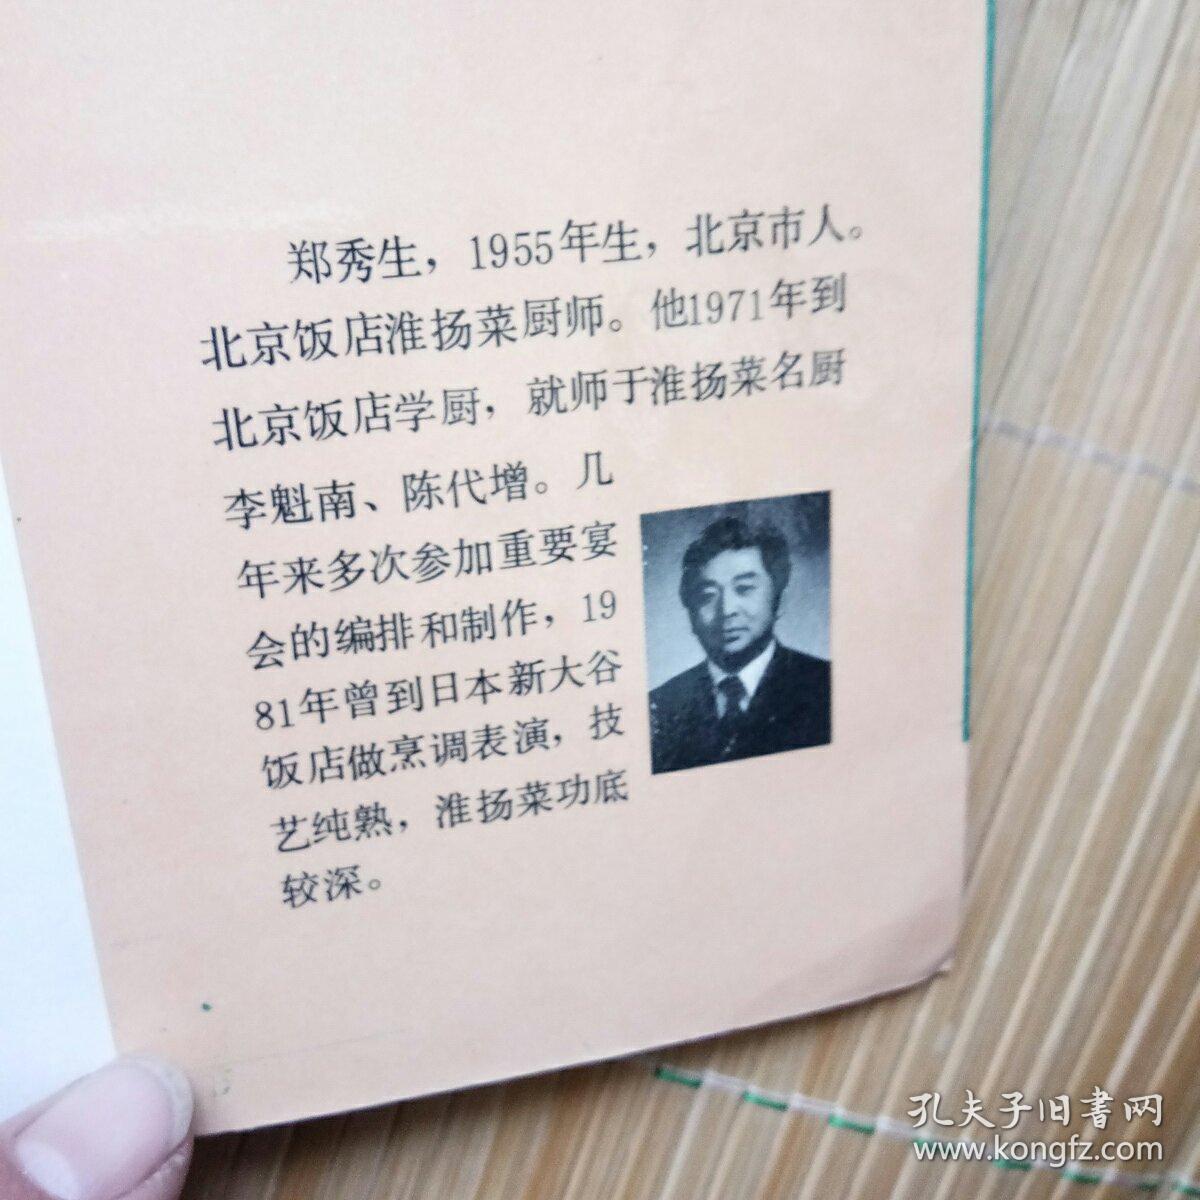 郑秀生，1955年生，北京市人。
北京饭店淮扬菜厨师。他1971年到
北京饭店学厨，就师于淮扬菜名厨
李魁南、陈代增。几
年来多次参加重要宴
会的编排和制作，19
81年曾到日本新大谷
饭店做烹调表演，技
艺纯熟，淮扬菜功底
较深。
孔夫子旧書网
www.kongfz.com